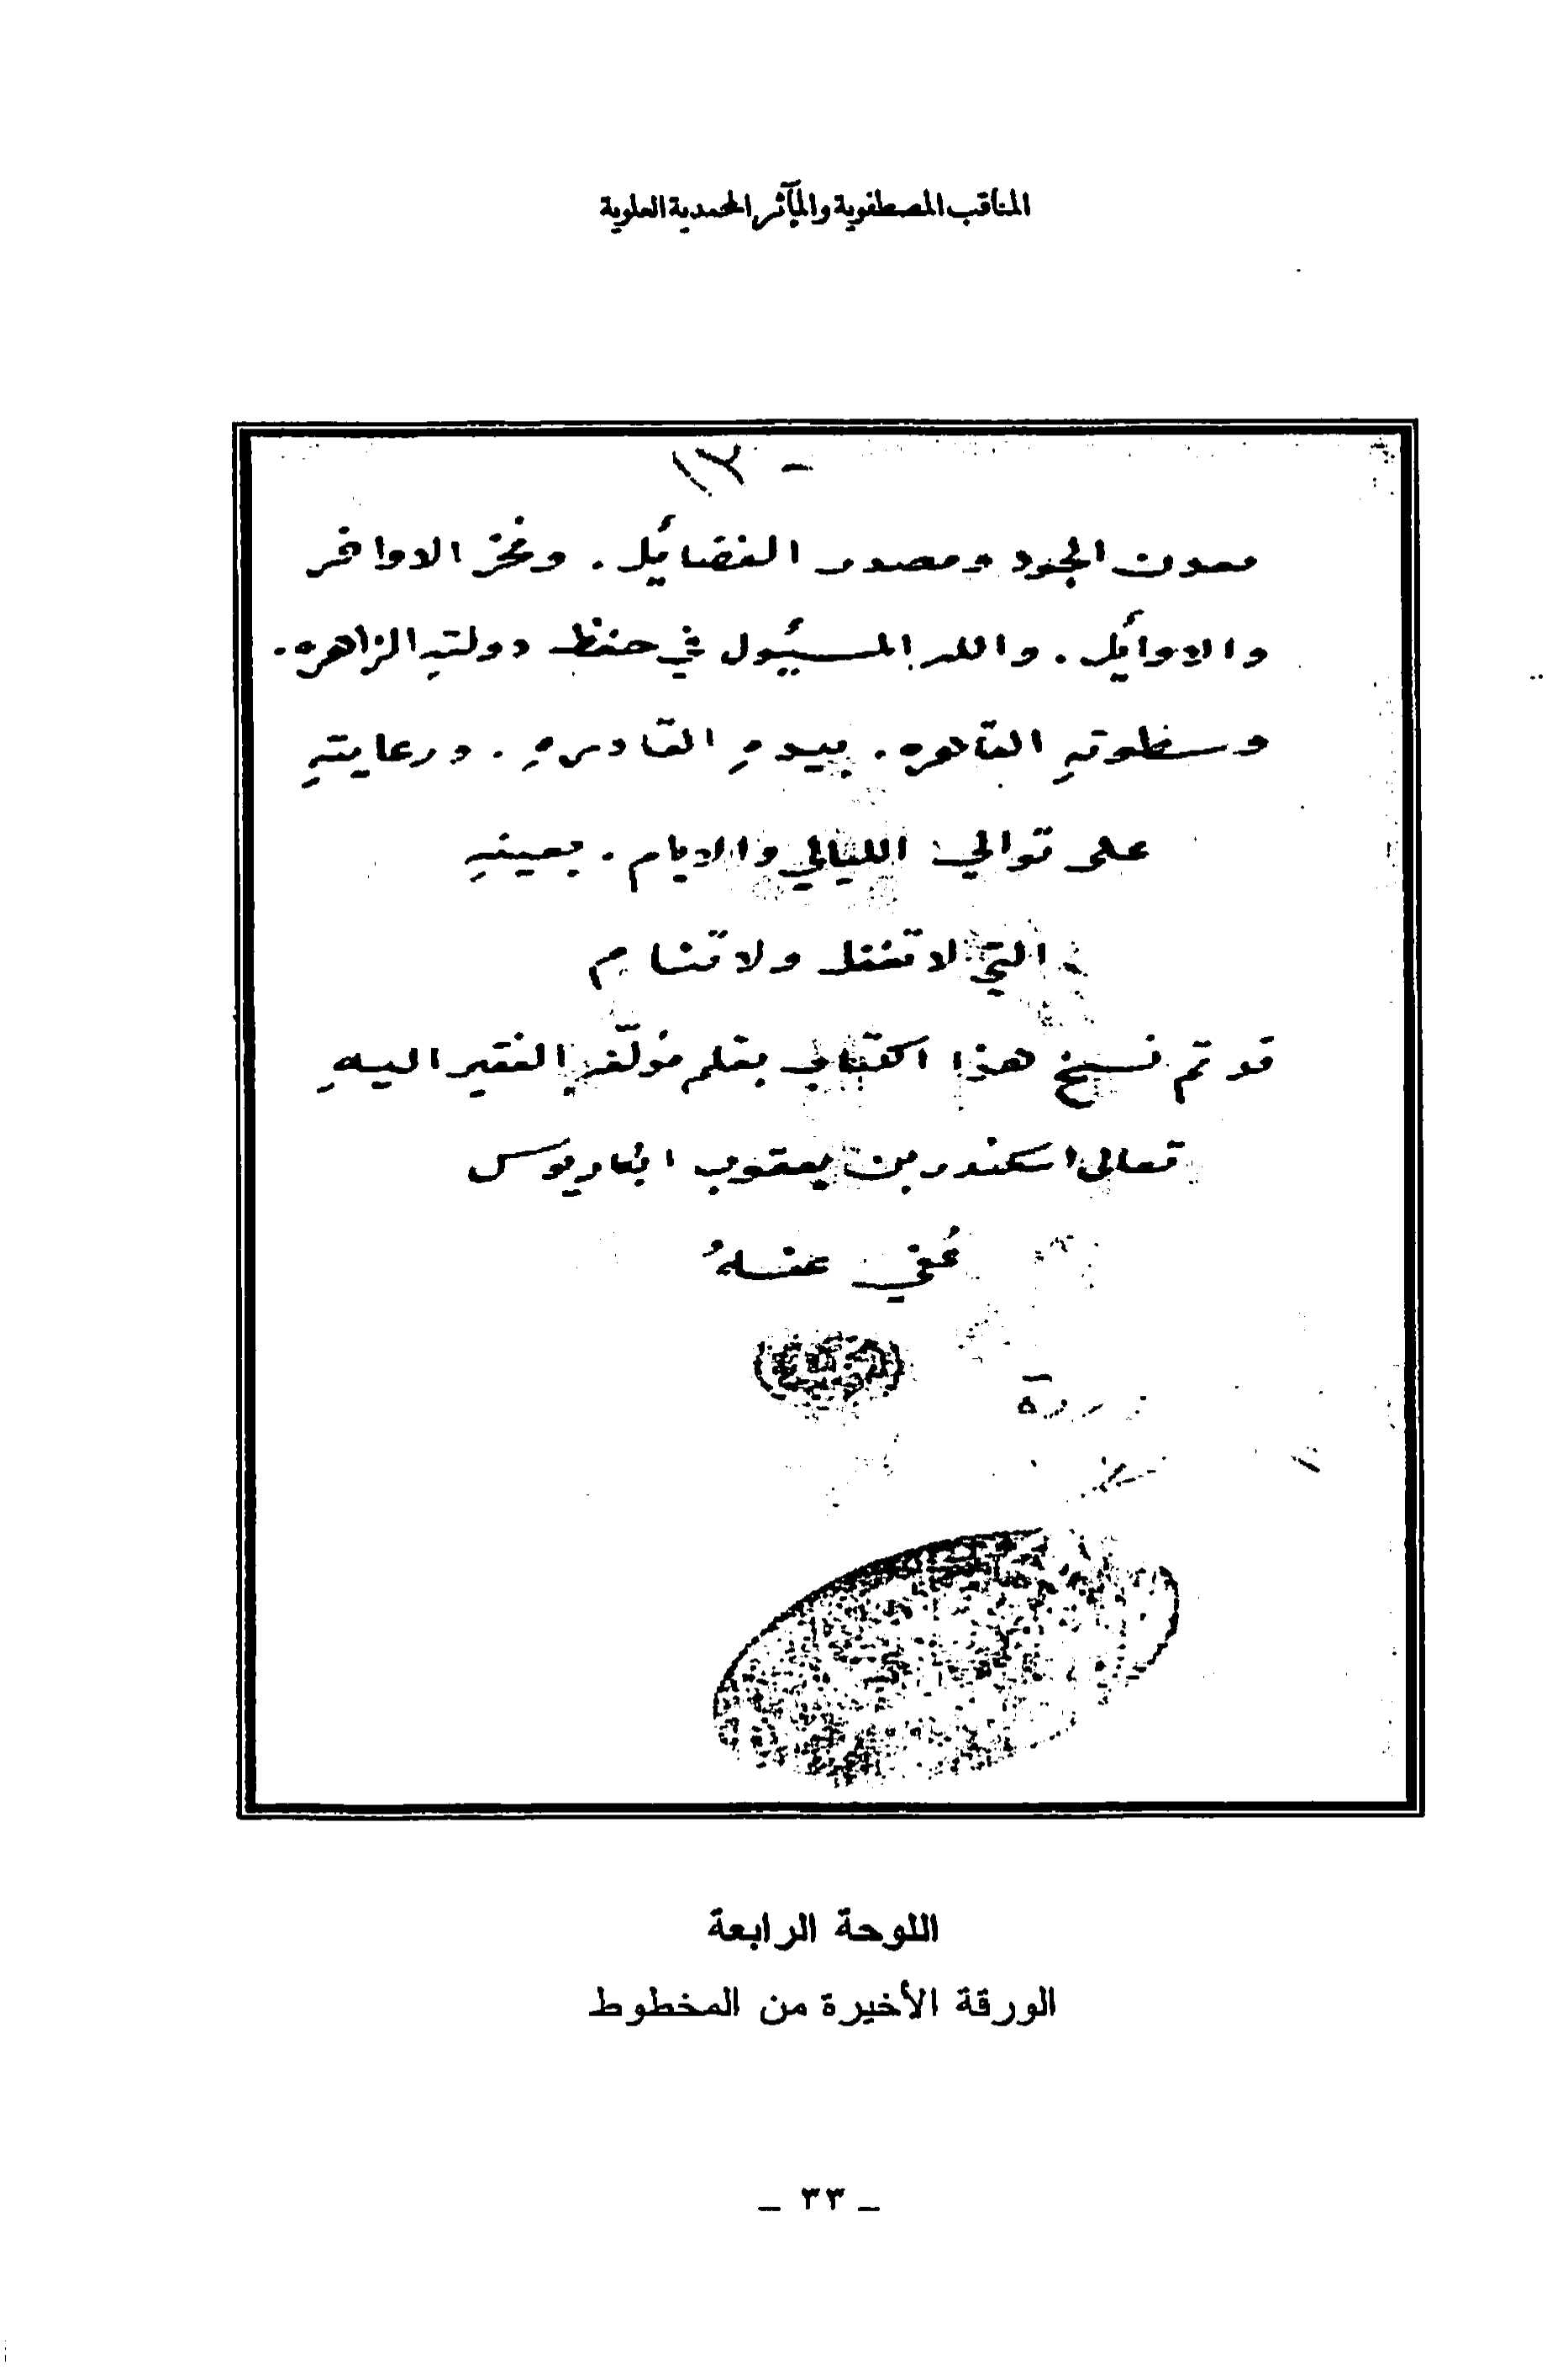 المناقب المصطفوية والمآثر المحمدية العلوية
معدن الجود ومصدر الفضائل . وفخر الاواخر
والاوائل . والله المسئول في حفظ دولتهِ الزاهره .
وسطوتهِ القاهره . بيدهِ القادرهِ . ورعايتهِ
على توالي الليالي والايام . بعينهِ
التي لا تغفل ولا تنام
قد تم نسخ هذا الكتاب بقلم مؤلّفهِ الفقير اليهِ
تعالى اسكندر بن يعقوب ابكاريوس
عُفي عنهُ
اللوحة الرابعة
الورقة الأخيرة من المخطوط
_ ٣٣ _